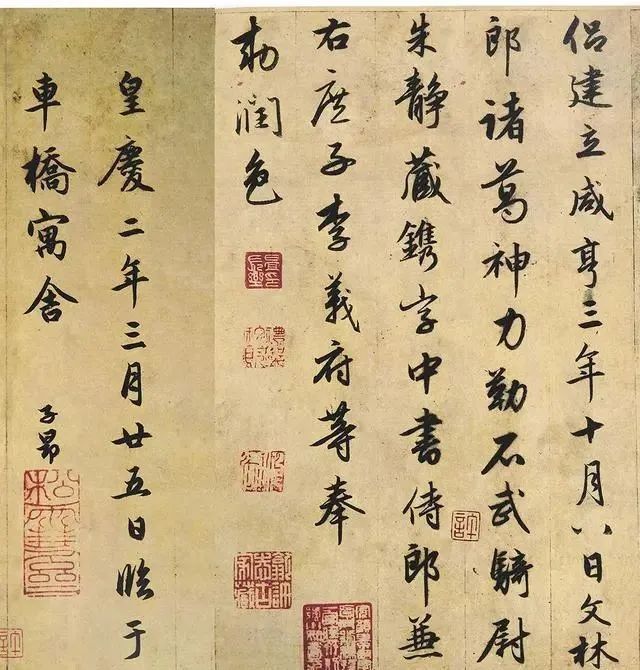 侣建立咸亨三年十月八日文林
郎诸葛神力勒石武騎尉
朱静藏鐫字中書侍郎兼
右庶子李義府等奉
勑潤色
皇慶二年三月廿五日臨于
車橋寓舍
子昂